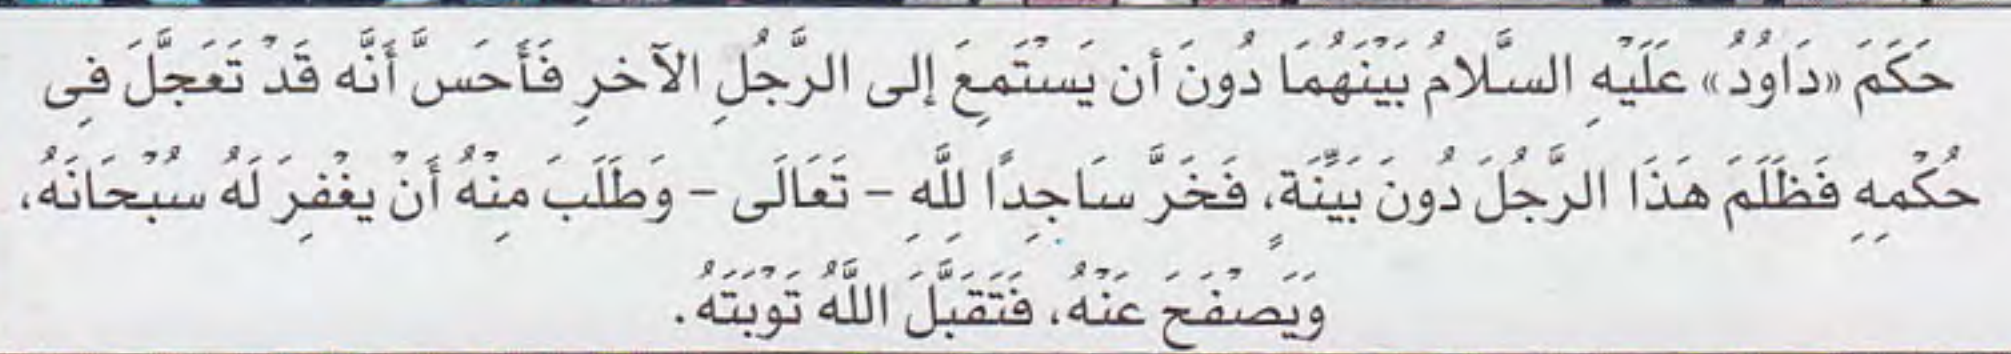 حَكَمَ «دَاوُدُ» عَلَيْهِ السَّلامُ بَيْنَهُمَا دُونَ أن يَسْتَمِعَ إلى الرَّجُلِ الآخرِ فَأَحَسَّ أَنَّه قَدْ تَعَجَّلَ فِى
حُكْمِهِ فَظَلَمَ هَذَا الرَّجُلَ دُونَ بَيِّنَةٍ، فَخَرَّ سَاجِدًا لِلَّهِ - تَعَالَى - وَطَلَبَ مِنْهُ أَنْ يغْفِرَ لَهُ سُبْحَانَهُ،
وَيَصْفَحَ عَنْهُ، فَتَقَبَّلَ اللَّهُ تَوْبَتَهُ.